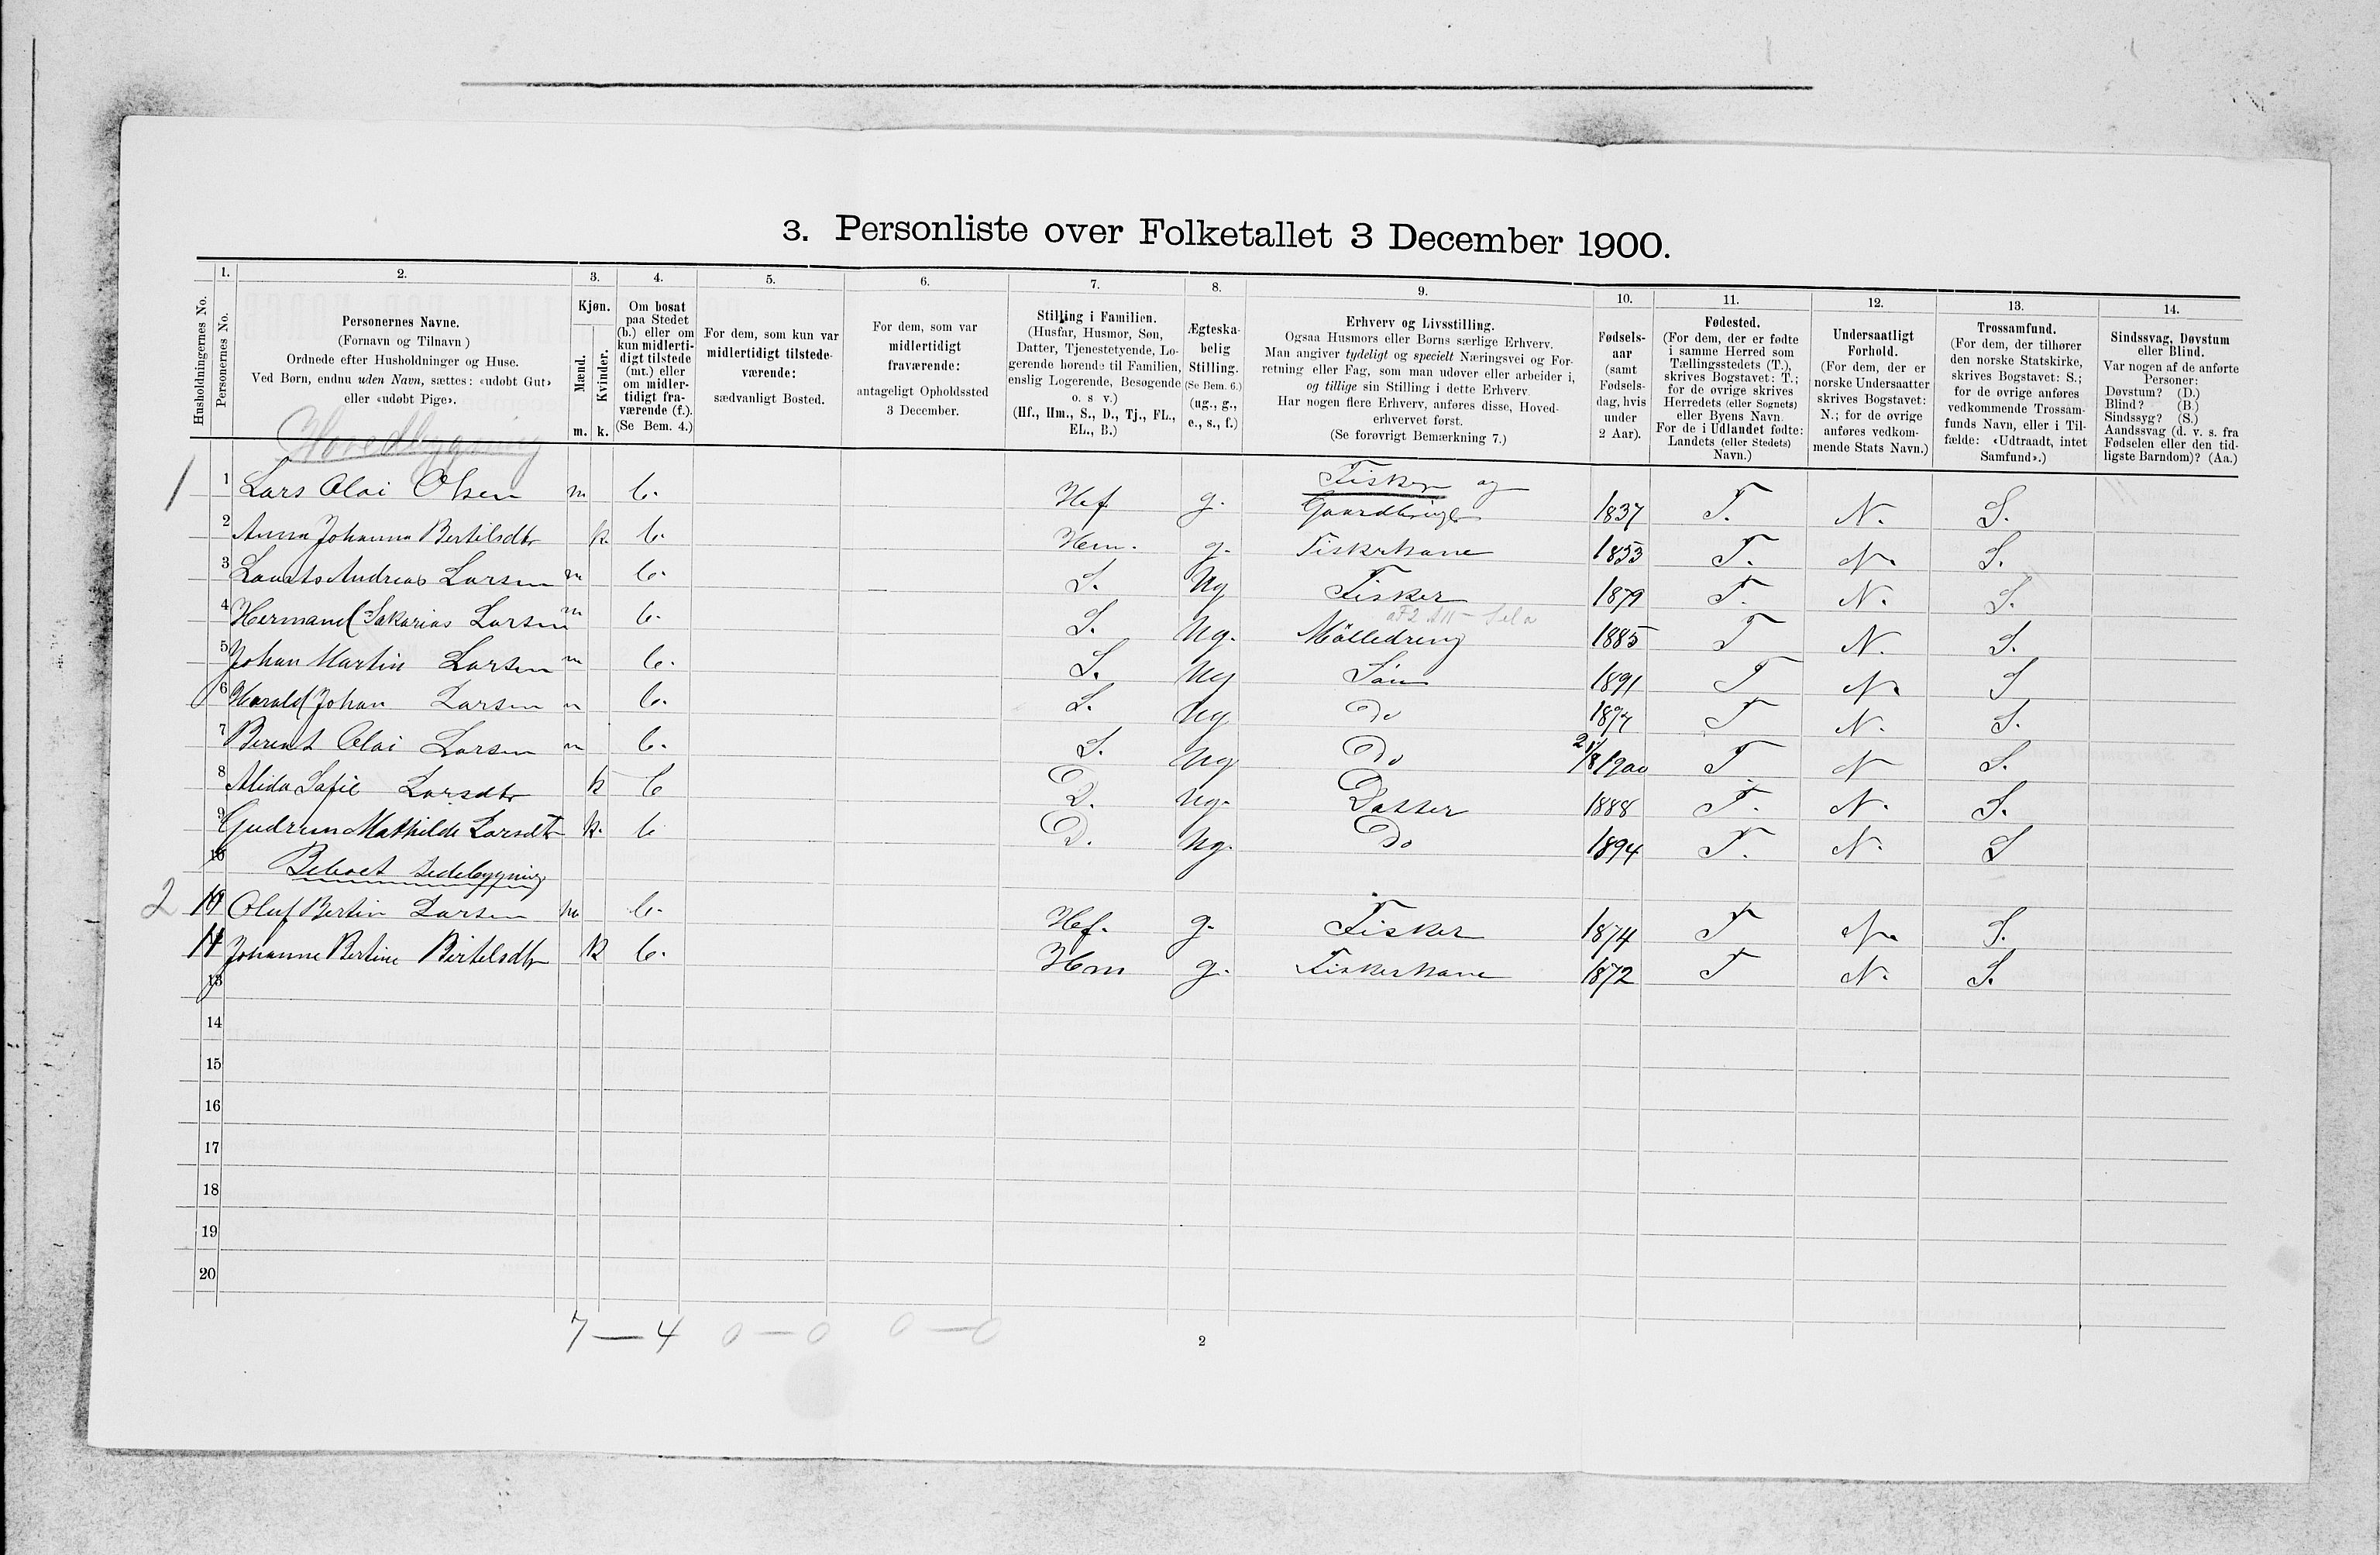 3. Personliste over Folketallet 3 December 1900.
Husholdningernes No.
1.
Personernes No.
2.
Personernes Navne.
(Fornavn og Tilnavn )
Ordnede efter Husholdninger og Huse.
Ved Børn, endnu uden Navn, sættes: «udøbt Gut»
eller «udøbt Pige».
3.
Kjøn.
Mænd.
Kvinder.
m. k.
4.
Om bosat
paa Stedet
(b.) eller om
kun midlerti-
digt tilstede
(mt.) eller
om midler-
tidigt fra-
værende (f.).
(Se Bem. 4.)
5.
For dem, som kun var
midlertidigt tilstede-
værende:
sædvanligt Bosted.
6.
For dem, som var
midlertidigt
fraværende:
antageligt Opholdssted
3 December.
7.
Stilling i Familien.
(Husfar, Husmor, Søn,
Datter, Tjenestetyende, Lo-
gerende hørende til Familien,
enslig Logerende, Besøgende
o. s v.)
(Hf., Hm., S., D., Tj., FL.,
EL., B.)
8.
Ægteska-
belig
Stilling.
(Se Bem. 6.)
(ug., g.,
e., s., f.)
9.
Erhverv og Livsstilling.
Ogsaa Husmors eller Børns særlige Erhverv.
Man angiver tydeligt og specielt Næringsvei og For-
retning eller Fag, som man udøver eller arbeider i,
og tillige sin Stilling i dette Erhverv.
Har nogen flere Erhverv, anføres disse, Hoved-
erhvervet først.
(Se forøvrigt Bemærkning 7.)
10.
Fødsels-
aar
(samt
Fødsels-
dag, hvis
under
2 Aar).
11.
Fødested.
(For dem, der er fødte
i samme Herred som
Tællingsstedets (T.),
skrives Bogstavet: T.;
for de øvrige skrives
Herredets (eller Sognets)
eller Byens Navn.
For de i Udlandet fødte:
Landets (eller Stedets)
Navn.)
12.
Undersaatligt
Forhold.
(For dem, der er
norske Undersaatter
skrives Bogstavet:
N.; for de øvrige
anføres vedkom-
mende Stats Navn.)
13.
Trossamfund.
(For dem, der tilhører
den norske Statskirke,
skrives Bogstavet: S.;
for de øvrige anføres
vedkommende Trossam-
funds Navn, eller i Til-
fælde: «Udtraadt, intet
Samfund».)
14.
Sindssvag, Døvstum
eller Blind.
Var nogen af de anførte
Personer:
Døvstum? (D.)
Blind? (B.)
Sindssyg? (S.)
Aandssvag (d. v. s. fra
Fødselen eller den tid-
ligste Barndom)? (Aa.)
Hovedbygning
1 1 Lars Olai Olsen m b. Hf g. Fisker og Gaardbruger 1837 T. N. S.
2 Anna Johanna Bertilsdtr k. b. Hm. g. Fiskerkone 1853 T. N. S.
3 Laurits Andreas Larsen m b. S. Ug Fisker 1879 T. N. S.
4 Hermand Sakarias Larsen m b. S. Ug. Mölledreng 1885 T N. S.
5 Johan Martin Larsen m b. S. Ug Søn 1891 T N. S
6 Harald Johan Larsen m b. S. Ug Do 1897 T N. S.
7 Berent Olai Larsen m b. S. Ug Do 21/8 1900 T N S.
8 Alida Sofie Larsdtr k b D. Ug. Datter 1888 T. N. S.
9 Gudrun Mathilde Larsdtr k. b D. Ug. Do 1894 T. N. S
10 Beboet Sidebygning
2 10 Oluf Bertin Larsen m b. Hf. g. Fisker 1874 T N. S.
11 Johanne Bertine Birtelsdtr k b. Hm g. Fiskerkone 1872 T N. S.
13
14
15
16
17
18
19
20
7 — 4 0 — 0 0 — 0
2